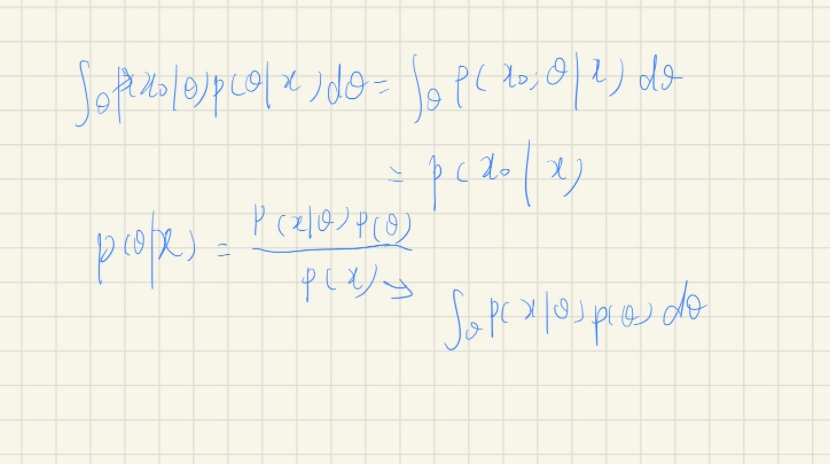 ∫_θ p(x₀|θ)p(θ|x)dθ = ∫_θ p(x₀, θ|x) dθ
= p(x₀|x)
p(θ|x) = P(x|θ)P(θ) / p(x) →
∫_θ p(x|θ)p(θ) dθ